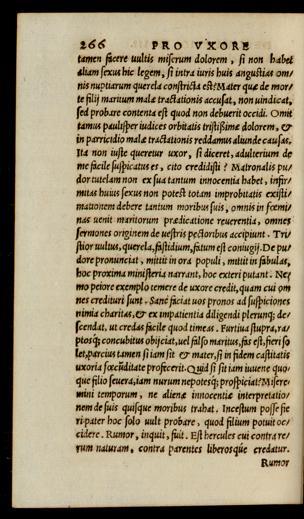 266 PRO VXORE
tamen facere uultis miserum dolorem, si non habet
aliam sexus hic legem, si intra iuris huius angustias om
nis nuptiarum querela constricta est? Mater quæ de mor
te filij maritum malæ tractationis accusat, non uindicat,
sed probare contenta est quod non debuerit occidi. Omit
tamus paulisper iudices orbitatis tristissimæ dolorem, &
in parricidio malæ tractationis reddamus aliunde causas.
Ita non iuste queretur uxor, si diceret, adulterium de
me facile suspicatus es, cito credidisti? Matronalis pu
dor tutelam non ex sua tantum innocentia habet, infir
mitas huius sexus non potest totam improbitatis existi
mationem debere tantum moribus suis, omnis in fœmi
nas uenit maritorum prædicatione reuerentia, omnes
sermones originem de uestris pectoribus accipiunt. Tri
stior uultus, querela, fastidium, fatum est coniugij. De pu
dore pronunciat, mittit in ora populi, mittit in fabulas,
hoc proxima ministeria narrant, hoc exteri putant. Ne
mo peiore exemplo temere de uxore credit, quam cui om
nes credituri sunt. Sane faciat uos pronos ad suspiciones
nimia charitas, & ex impatientia diligendi plerunq; de
scendat, ut credas facile quod timeas. Furtiua stupra, ra
ptosq; concubitus obijciat, uel falso maritus, fas est, fieri so
let, parcius tamen si iam sit & mater, si in fidem castitatis
uxoria fœcūditate profecerit. Quid si sit iam iuuene quo
que filio seuera, iam nurum nepotesq; prospiciat? Misere
mini temporum, ne alienæ innocentiæ interpretatio
nem de suis quisque moribus trahat. Incestum posse fie
ri pater hoc solo uult probare, quod filium potuit oc
cidere. Rumor, inquit, fuit. Est hercules cui contra re
rum naturam, contra parentes liberosque credatur.
Rumor